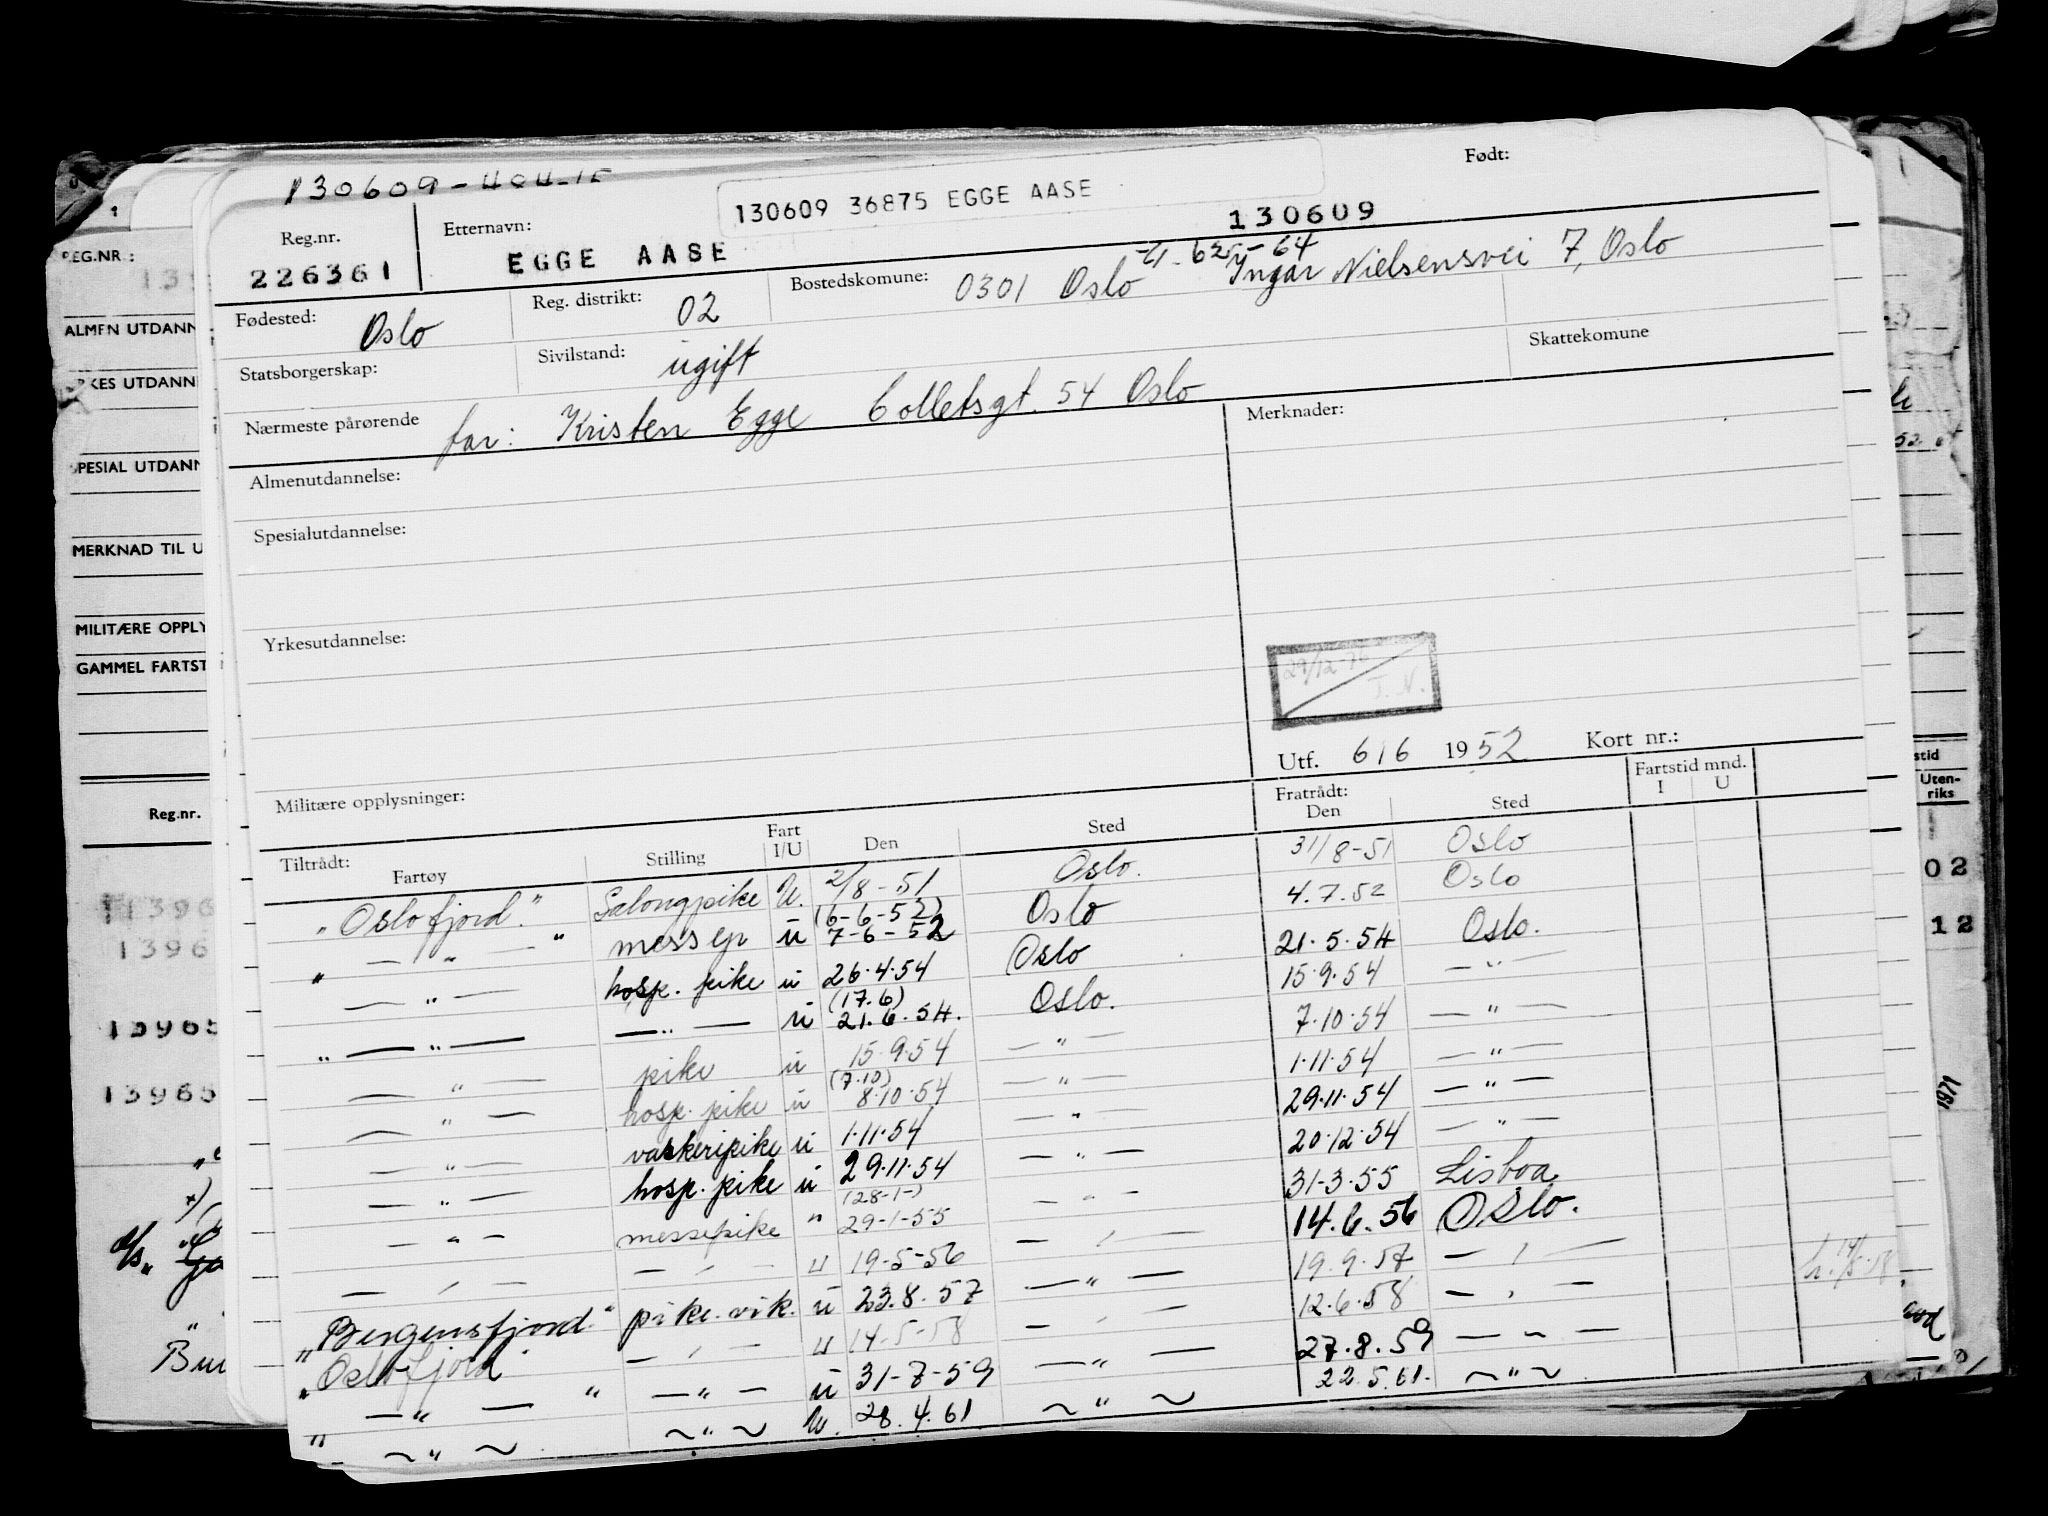 130609
130609 36875 EGGE AASE
Født:
130609
Reg.nr.
226361
Etternavn:
EGGE AASE
Fødested: Oslo
Reg. distrikt: 02
Bostedskomune: 0301 Oslo Ingar Nielsensvei 7, Oslo
Statsborgerskap:
Sivilstand: ugift
Skattekomune
Nærmeste pårørende far: Kristen Egge Colletsgt. 54 Oslo
Merknader:
Almenutdannelse:
Spesialutdannelse:
Yrkesutdannelse:
29/12-76
T.N.
Utf. 6/6 1952 Kort nr.:
Militære opplysninger:
Tiltrådt: Fartøy Stilling Fart I/U Den Sted Fratrådt: Den Sted Fartstid mnd. I U
"Oslofjord" Salongpike U. 2/8-51 Oslo. 31/8-51 Oslo
" — " — " messep u (6-6-52) 7-6-52 Oslo 4.7.52 Oslo
— " — hosp. pike u 26.4.54 Oslo 21.5.54 Oslo.
" — " — — " — u (17.6) 21.6.54. Oslo. 15.9.54 — " —
— " — pike u 15.9.54 — " — 7.10.54 — " —
— " — hosp. pike u (7.10) 8.10.54 — " — 1.11.54 — " —
— " — vaskeripike u 1.11.54 — " — 29.11.54 — " —
— " — hosp. pike u 29.11.54 — " — 20.12.54 — " —
— " — messepike " (28-1-) 29-1-55 — " — 31-3-55 Lisboa
— " — — " — u 19-5-56 — " — 14.6.56 Oslo.
"Bergensfjord" pike. vik. u 23.8.57 — " — 19.9.57 — " —
"Oslofjord — " — u 14-5-58 — " — 12.6.58 — " —
— " — " — " — u 31-7-59 — " — 27.8.59 — " —
" — " — — " — U. 28.4.61 — " — 22.5.61. — " —
REG.NR.:
ALMEN UTDANN
RKES UTDANN
SPESIAL UTDANN
MERKNAD TIL U
MILITÆRE OPPLY
GAMMEL FARTST
Reg.nr.
1396
1396
13965
13965
stid
Uten-
riks
02
12
1971